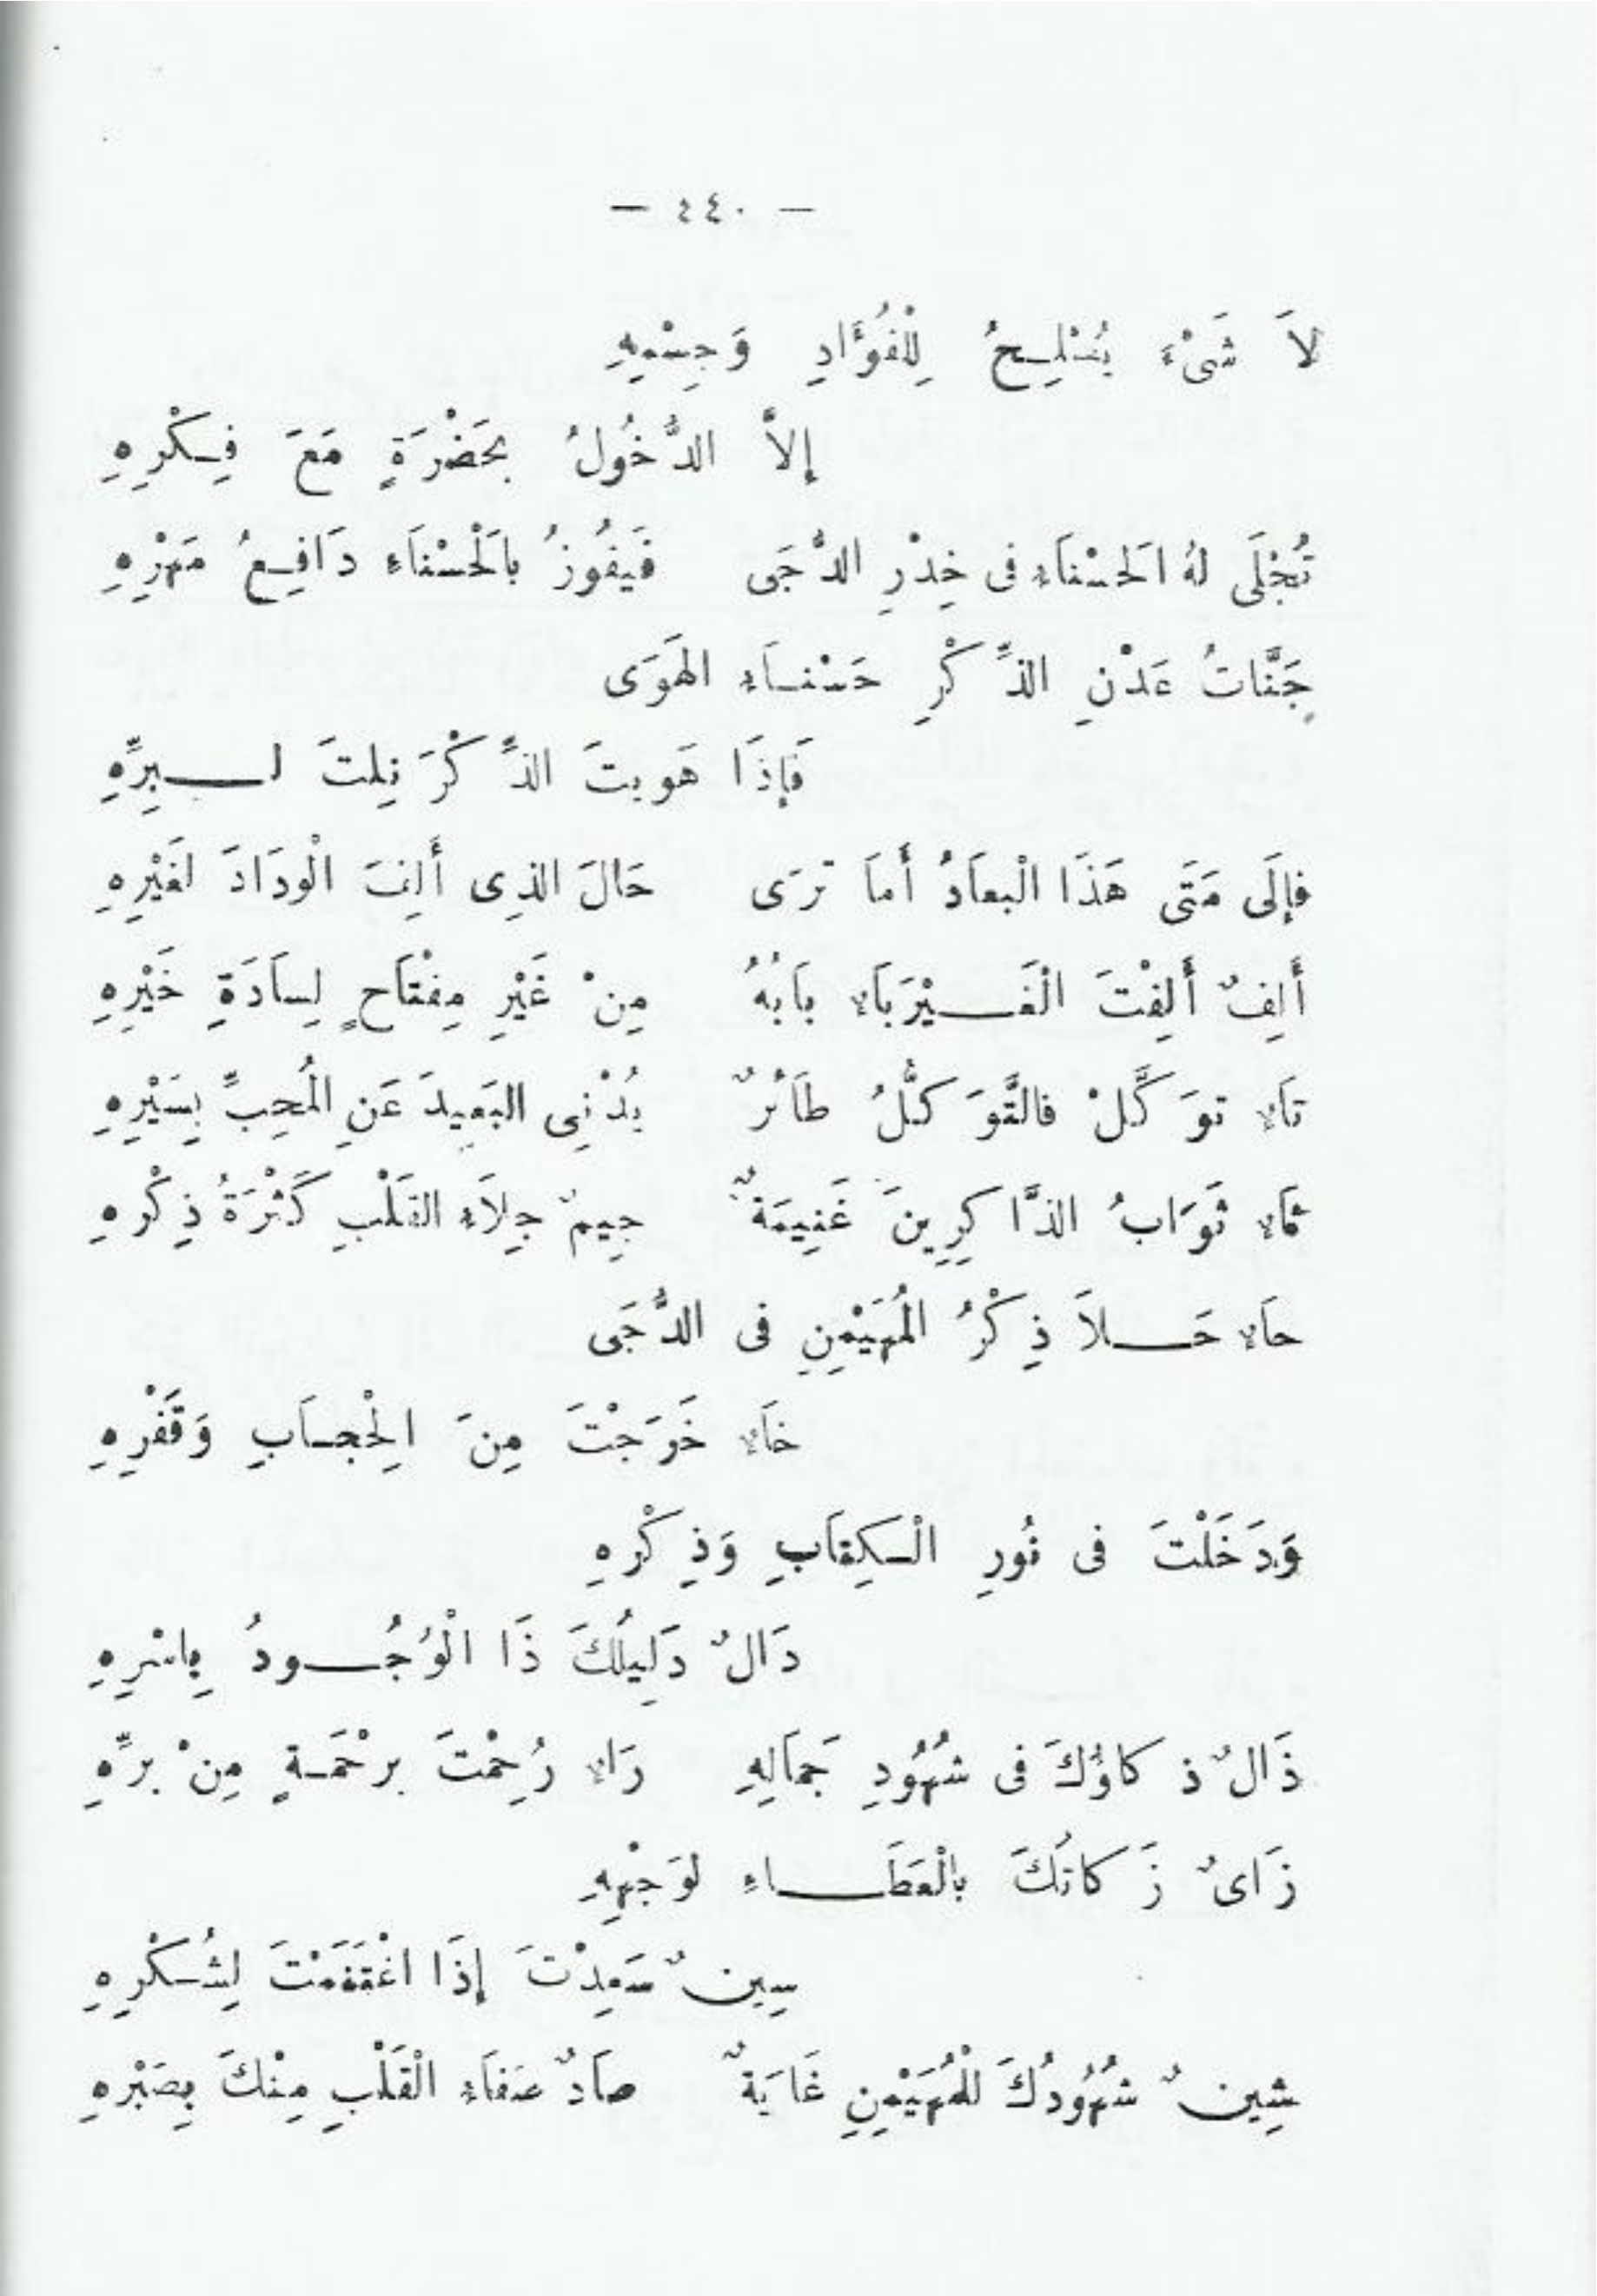 — ٤٤٠ —
لاَ شَىْءَ يُصْلِحُ لِلْفُؤَادِ وَجِسْمِهِ
إِلاَّ الدُّخُولُ بِحَضْرَةٍ مَعَ فِكْرِهِ
تُجْلَى لهُ الحَسْنَاءِ فى خِدْرِ الدُّجَى فَيَفُوزُ بالحَسْنَاءِ دَافِعُ مَهْرِهِ
جَنَّاتُ عَدْنِ الذِّكْرِ حَسْنَاءِ الهَوَى
فَإِذَا هَويتَ الذِّكْرَ نِلتَ لـبِرِّهِ
فإلَى مَتَى هَذَا الْبعَادُ أَمَا تَرَى حَالَ الذِى أَلِفَ الْودَادَ لغَيْرِهِ
أَلِفٌ أَلِفْتَ الْغَـيْرَ بَاءٌ بَابُهُ مِنْ غَيْرِ مِفْتَاحٍ لِسَادَةِ خَيْرِهِ
تَاءٌ توَكَّلْ فالتَّوَكُّلُ طَائرٌ يُدْنِى البَعِيدَ عَنِ الْمُحِبِّ بِسَيْرِهِ
ثَاءٌ ثَوَابُ الذَّاكِرِينَ غَنِيمَةٌ جِيمٌ جِلاَءِ القَلْبِ كَثْرَةُ ذِكْرِهِ
حَاءٌ حَـلاَ ذِكْرُ الْمُهَيْمِنِ فى الدُّجَى
خَاءٌ خَرَجْتَ مِنَ الحِجَابِ وَقَفْرِهِ
وَدَخَلْتَ فى نُورِ الْكِتَابِ وَذِكْرِهِ
دَالٌ دَلِيلُكَ ذَا الْوُجُـودُ بِاسْرِهِ
ذَالٌ ذكاؤُكَ فى شُهُودِ جَمَالِهِ رَاءٌ رُحِمْتَ برحْمَةٍ مِنْ برِّهِ
زَاىٌ زَكاتُكَ بالْعَطَـاءِ لوَجْهِهِ
سِينٌ سَعِدْتَ إِذَا اغْتَنَمْتَ لِشُكْرِهِ
شِينٌ شُهُودُكَ للْمُهَيْمِنِ غَايَةٌ صَادٌ صَفَاءِ الْقَلْبِ مِنْكَ بِصَبْرِهِ